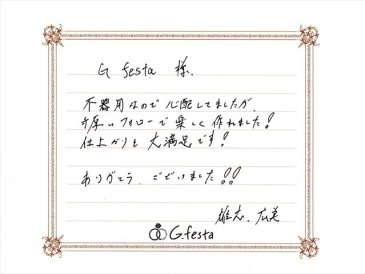 G festa 様.
不器用なので心配してましたが、
手厚いフォローで楽しく作れました!
仕上がりも大満足です!
ありがとう、ございました!!
雄志. 広美
G.festa